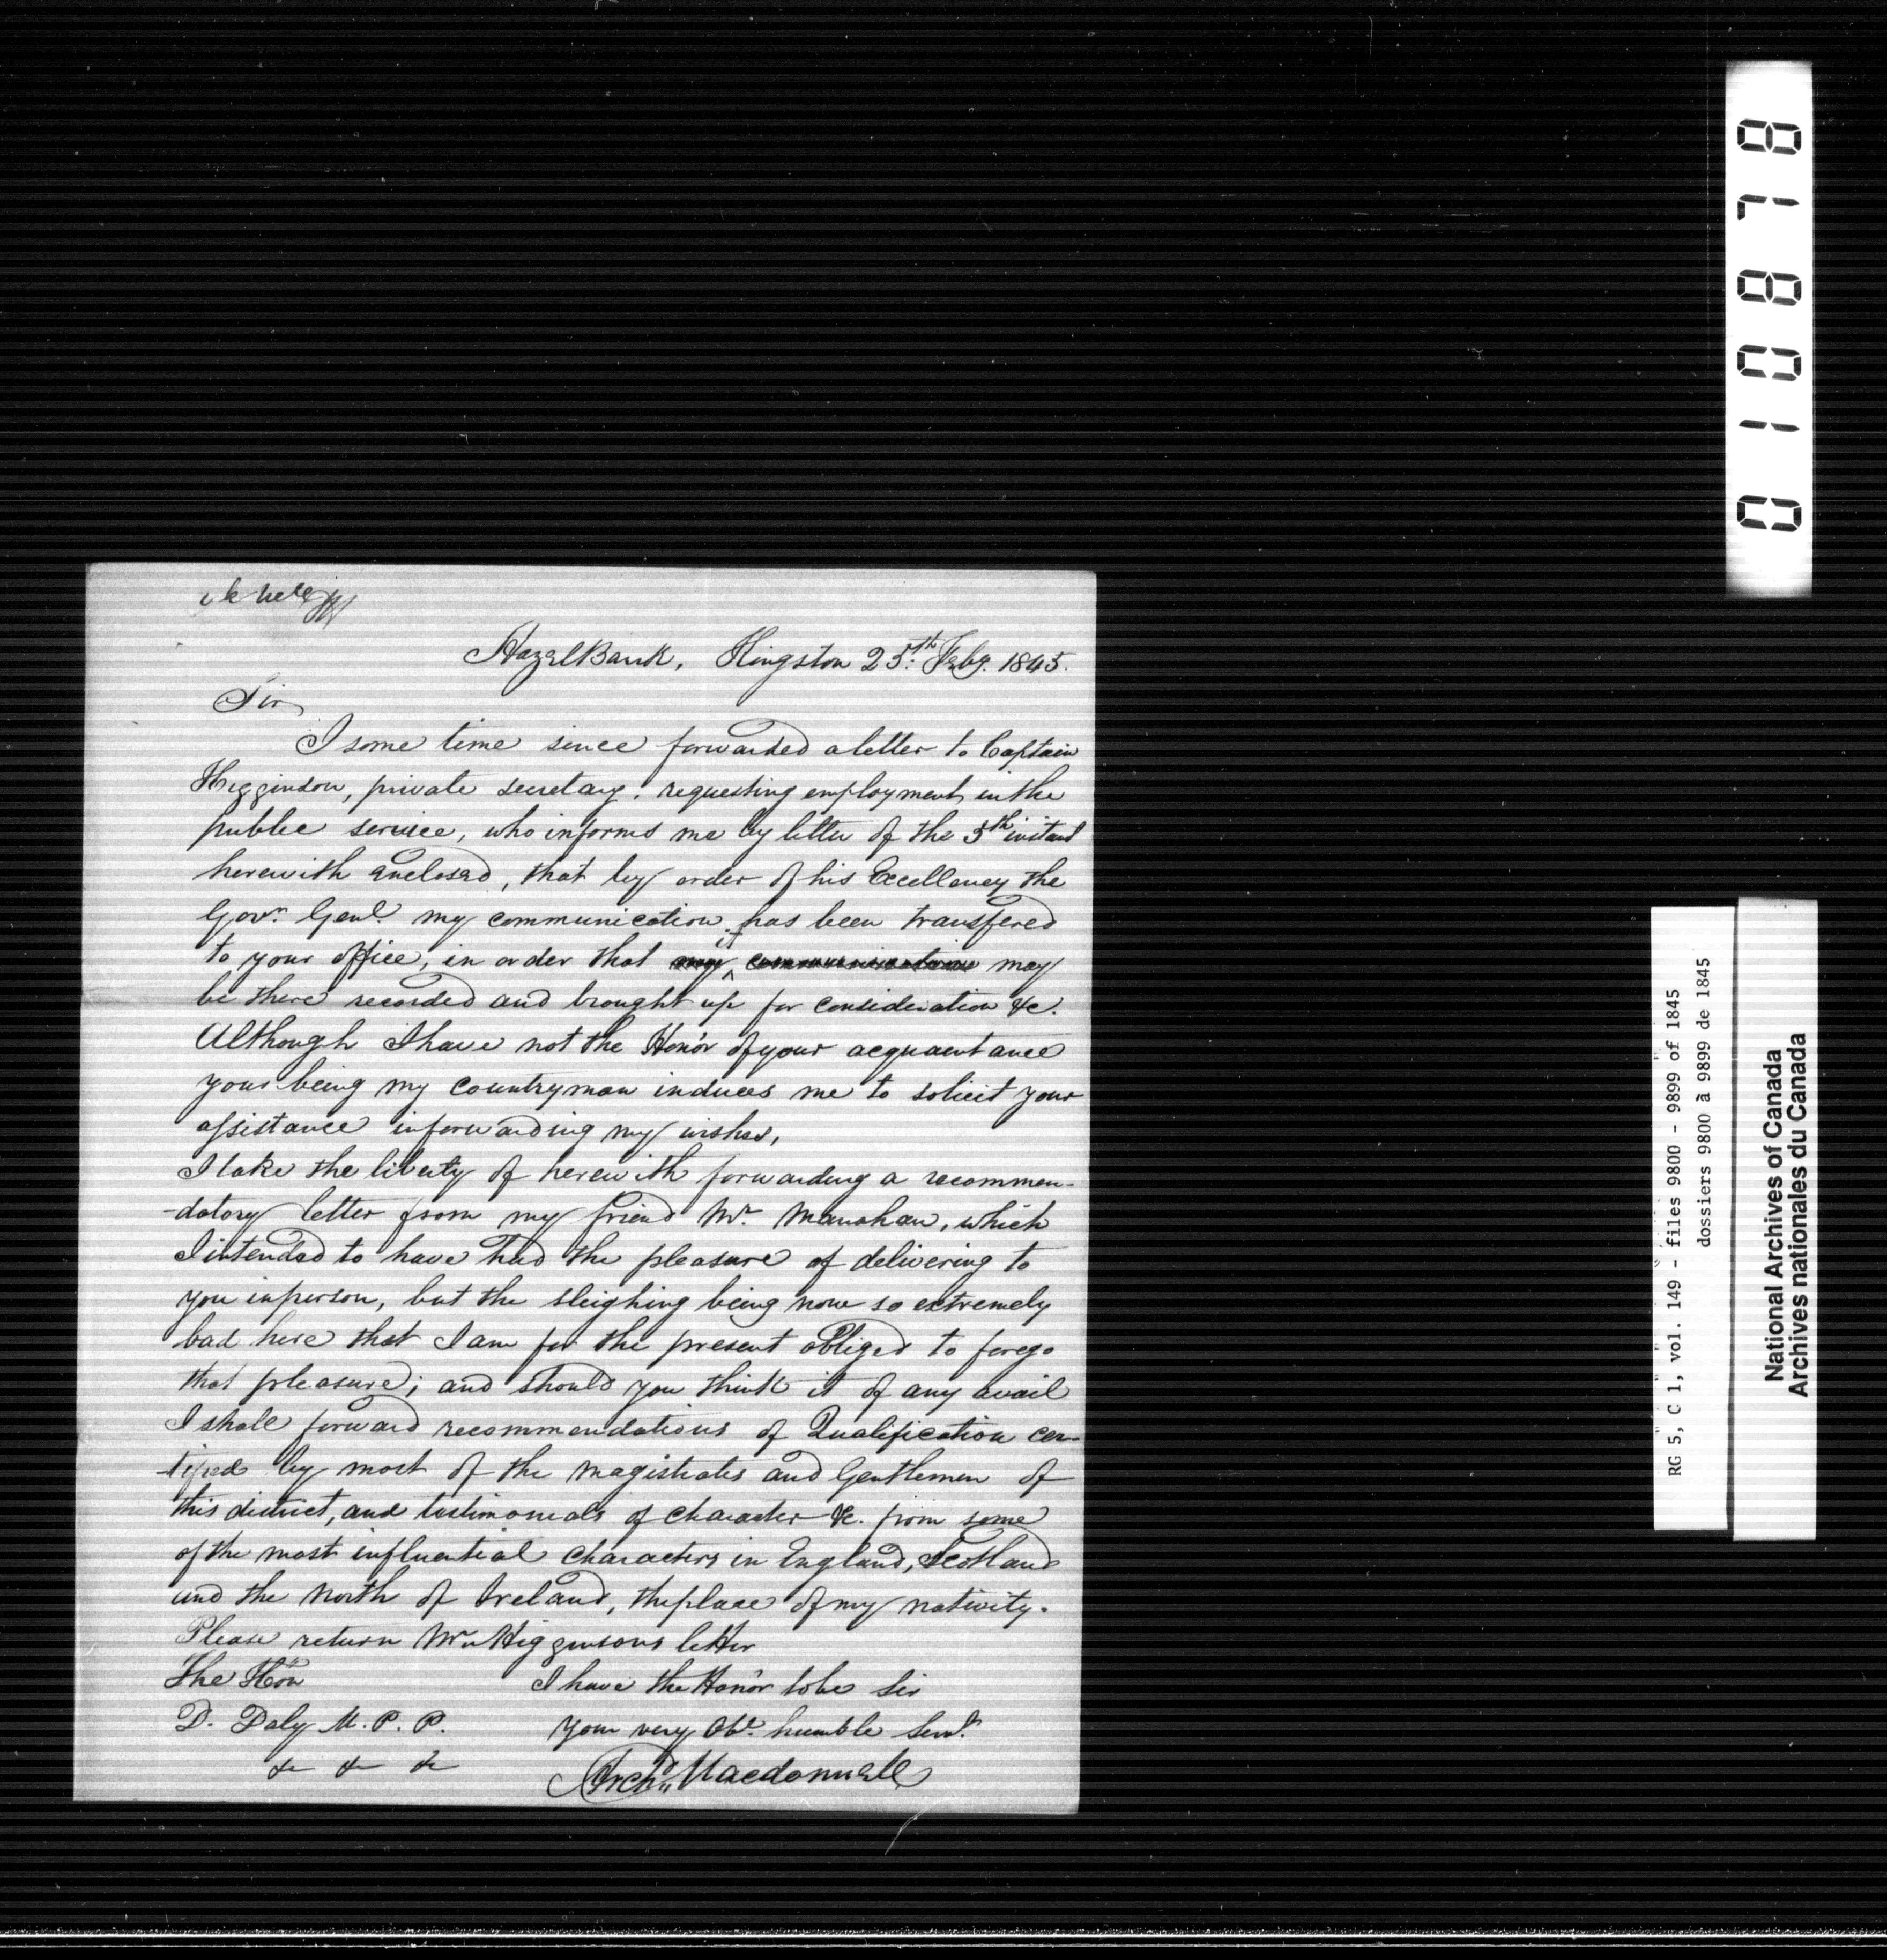 Hazel Bank, Kingston 25th Feby. 1845.
Sir
I some time since forwarded a letter to Captain
Higginson, private secretary, requesting employment in the
public service, who informs me by letter of the 5th instant
herewith enclosed, that by order of his Excellency the
Govr. Genl. my communication has been transfered
to your office, in order that my communication it may
be there recorded and brought up for consideration &c.
Although I have not the Honor of your acquaintance
your being my countryman induces me to solicit your
assistance in forwarding my wishes,
I take the liberty of herewith forwarding a recommen-
-datory letter from my friend Mr. Manahan, which
I intended to have had the pleasure of delivering to
you in person, but the sleighing being now so extremely
bad here that I am for the present obliged to forego
that pleasure; and should you think it of any avail
I shall forward recommendations of Qualification cer-
-tified by most of the magistrates and Gentlemen of
this district, and testimonials of character &c. from some
of the most influential characters in England, Scotland
and the North of Ireland, the place of my nativity.
Please return Mr. Higginsons letter
The Hon
I have the Honor to be Sir
D. Daly M.P.P.
your very Obt. humble Servt.
& & &
Archd. Macdonnell
010878
RG 5, C 1, vol. 149 - files 9800 - 9899 of 1845
dossiers 9800 à 9899 de 1845
National Archives of Canada
Archives nationales du Canada